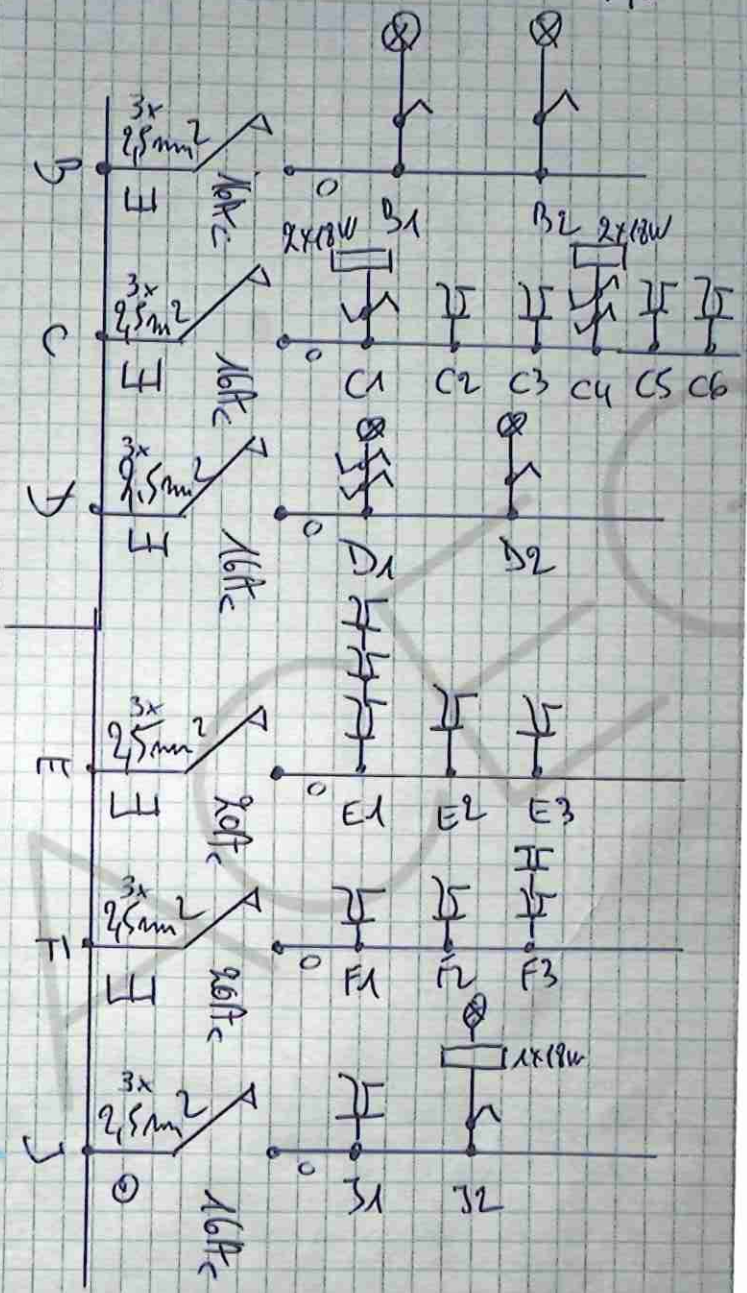 B
3x
2,5mm²
16A
c
B1
B2
2x18W
2x18W
C
3x
2,5m²
16A
c
C1
C2
C3
C4
C5
C6
3x
2,5mm²
16A
c
D1
D2
E
3x
2,5mm²
20A
c
E1
E2
E3
F
3x
2,5mm²
20A
c
F1
F2
F3
1x18W
J
3x
2,5mm²
16A
c
J1
J2